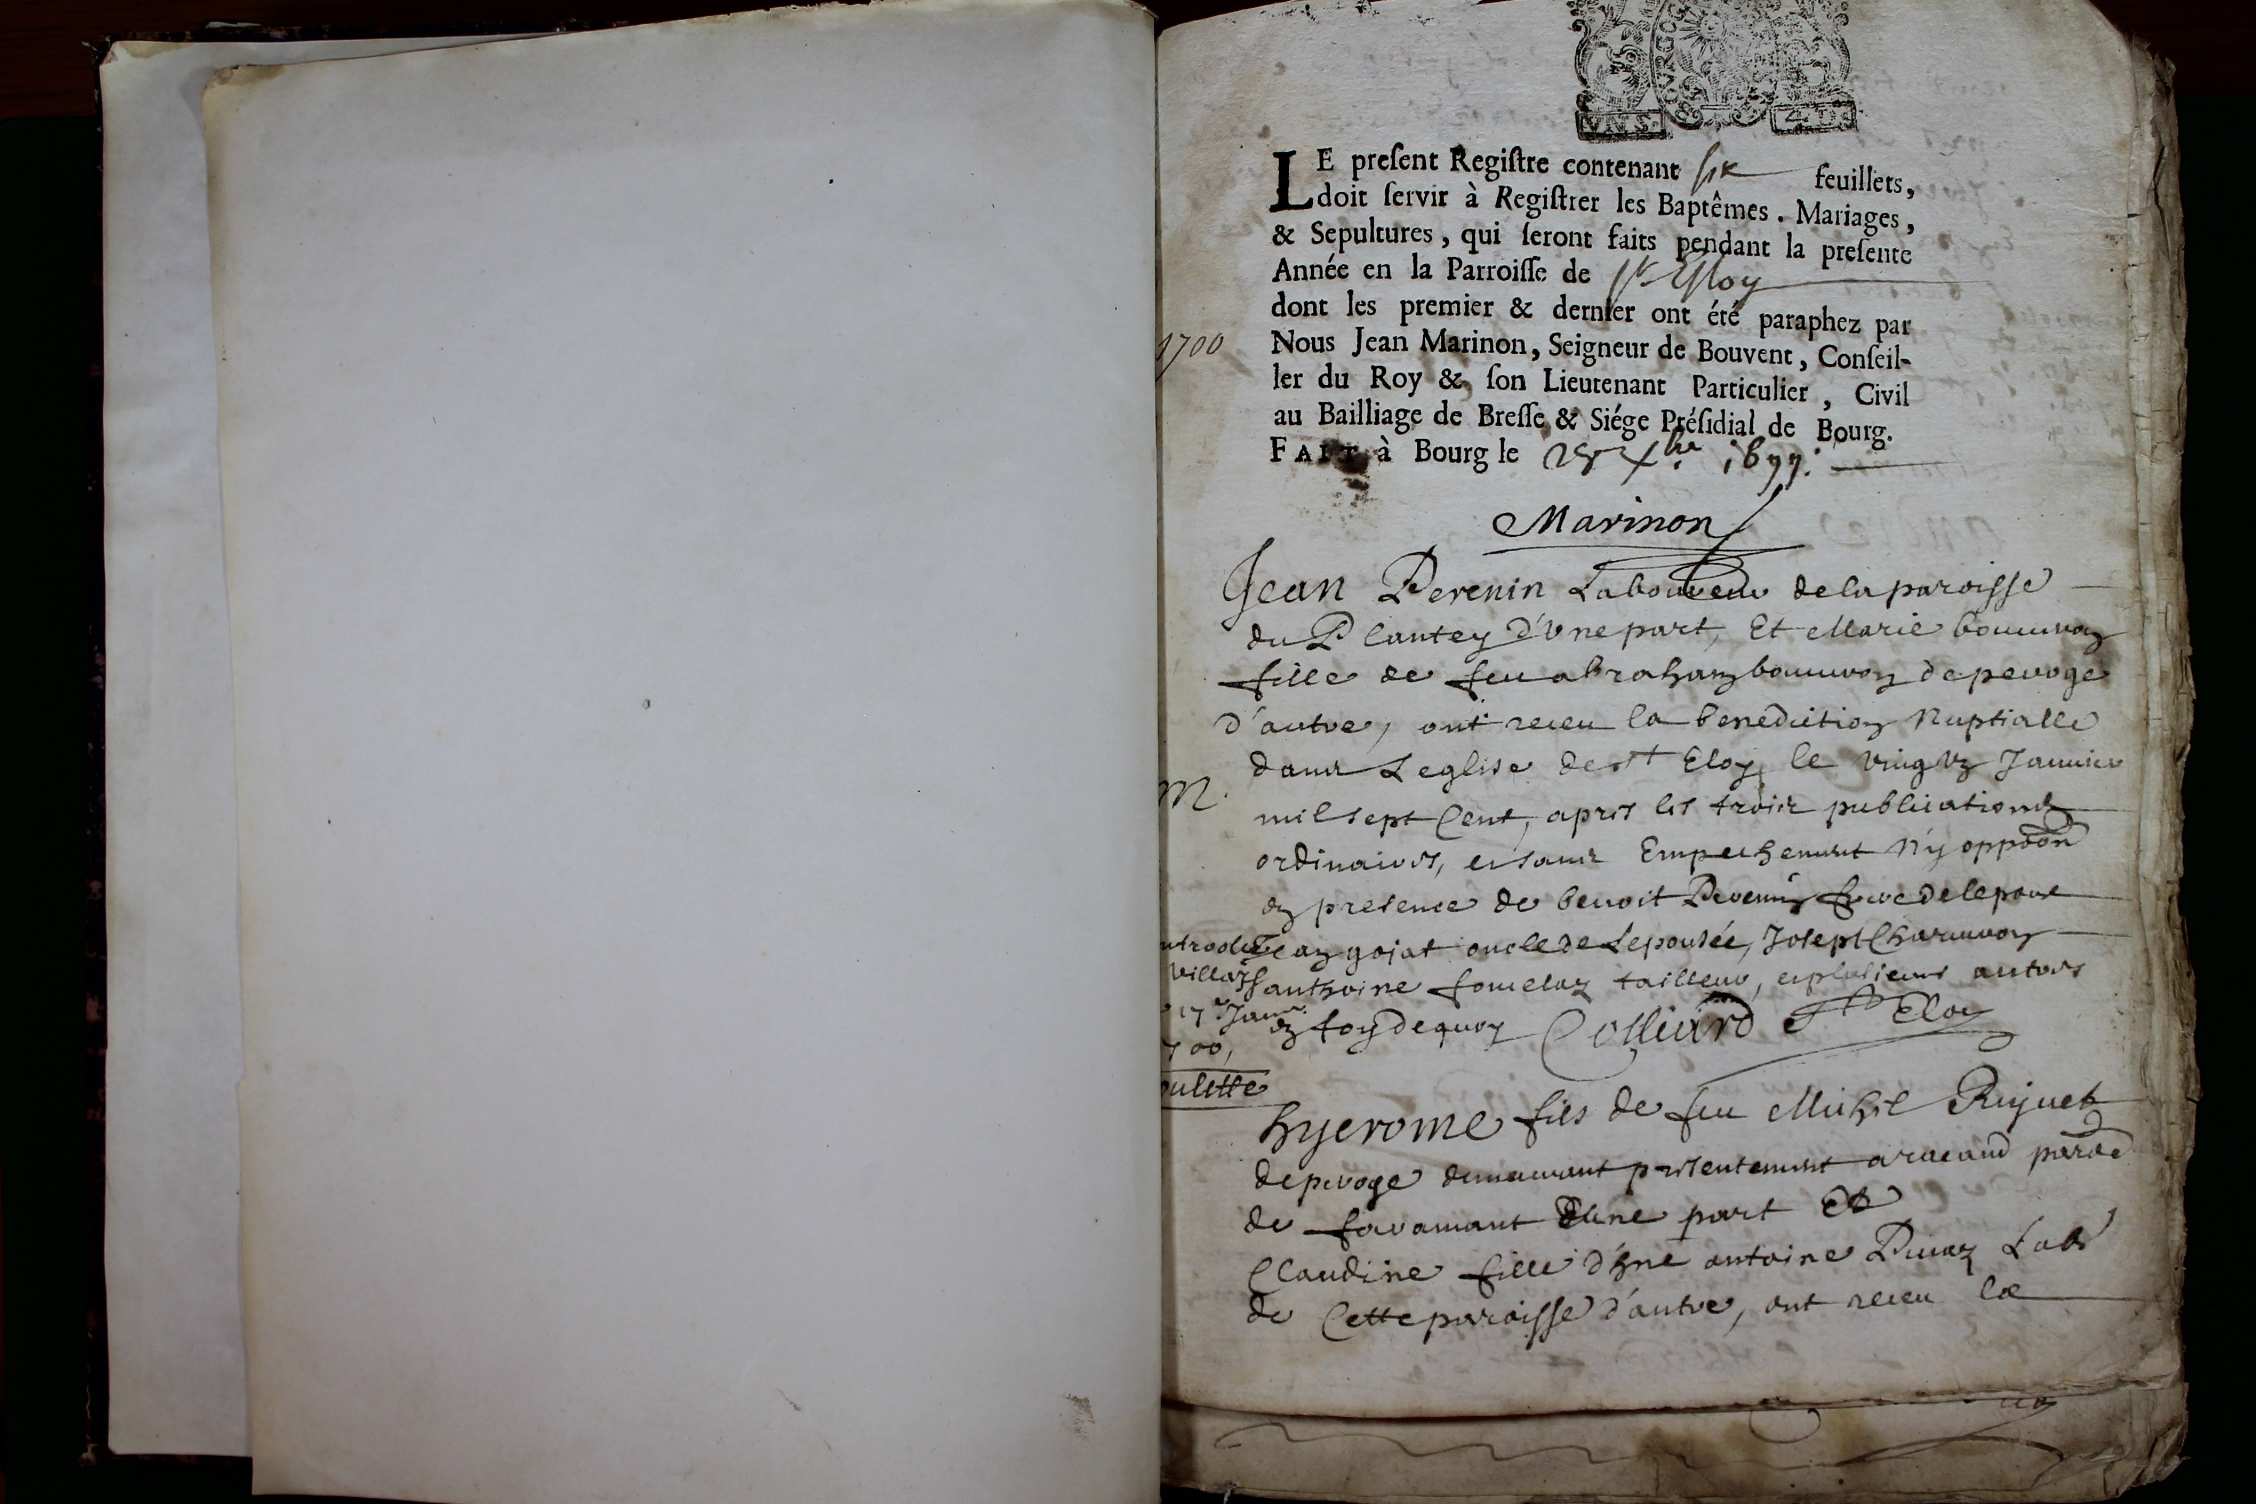 VN S. 4 D.
LE preſent Regiſtre contenant six feuillets,
doit ſervir à Regiſtrer les Baptêmes. Mariages,
& Sepultures, qui ſeront faits pendant la preſente
Année en la Parroiſſe de St Elloy
dont les premier & dernier ont été paraphez par
1700
Nous Jean Marinon, Seigneur de Bouvent, Conſeil-
ler du Roy & ſon Lieutenant Particulier, Civil
au Bailliage de Breſſe & Siége Préſidial de Bourg.
FAIT à Bourg le 28 xbre 1699.
Marinon
Jean Perenin Laboureur de la paroisse
du Plantey d'Vne part, Et Marie
fille de feu abraham de peroge
d'autre, ont receu la benediction Nuptialle
dans Leglise de st Eloy le vingt Janvier
mil sept Cent, apres les trois publications
ordinaires, et sans Empechement Ny oppoon
en presence de benoit Perenin frere de lepoux
Jean gojat oncle de Lepousée, Joseph
anthoine tailleur, et plusieurs autres
en foy de quoy Colliard St Eloy
M.
villars
17e Janr.
700,
hyerome fils de feu Michel
de peroge demeurant presentement a paroe
de faramant d'une part Et
Claudine fille d'hne antoine Labr
de Cette paroisse d'autre, ont receu la